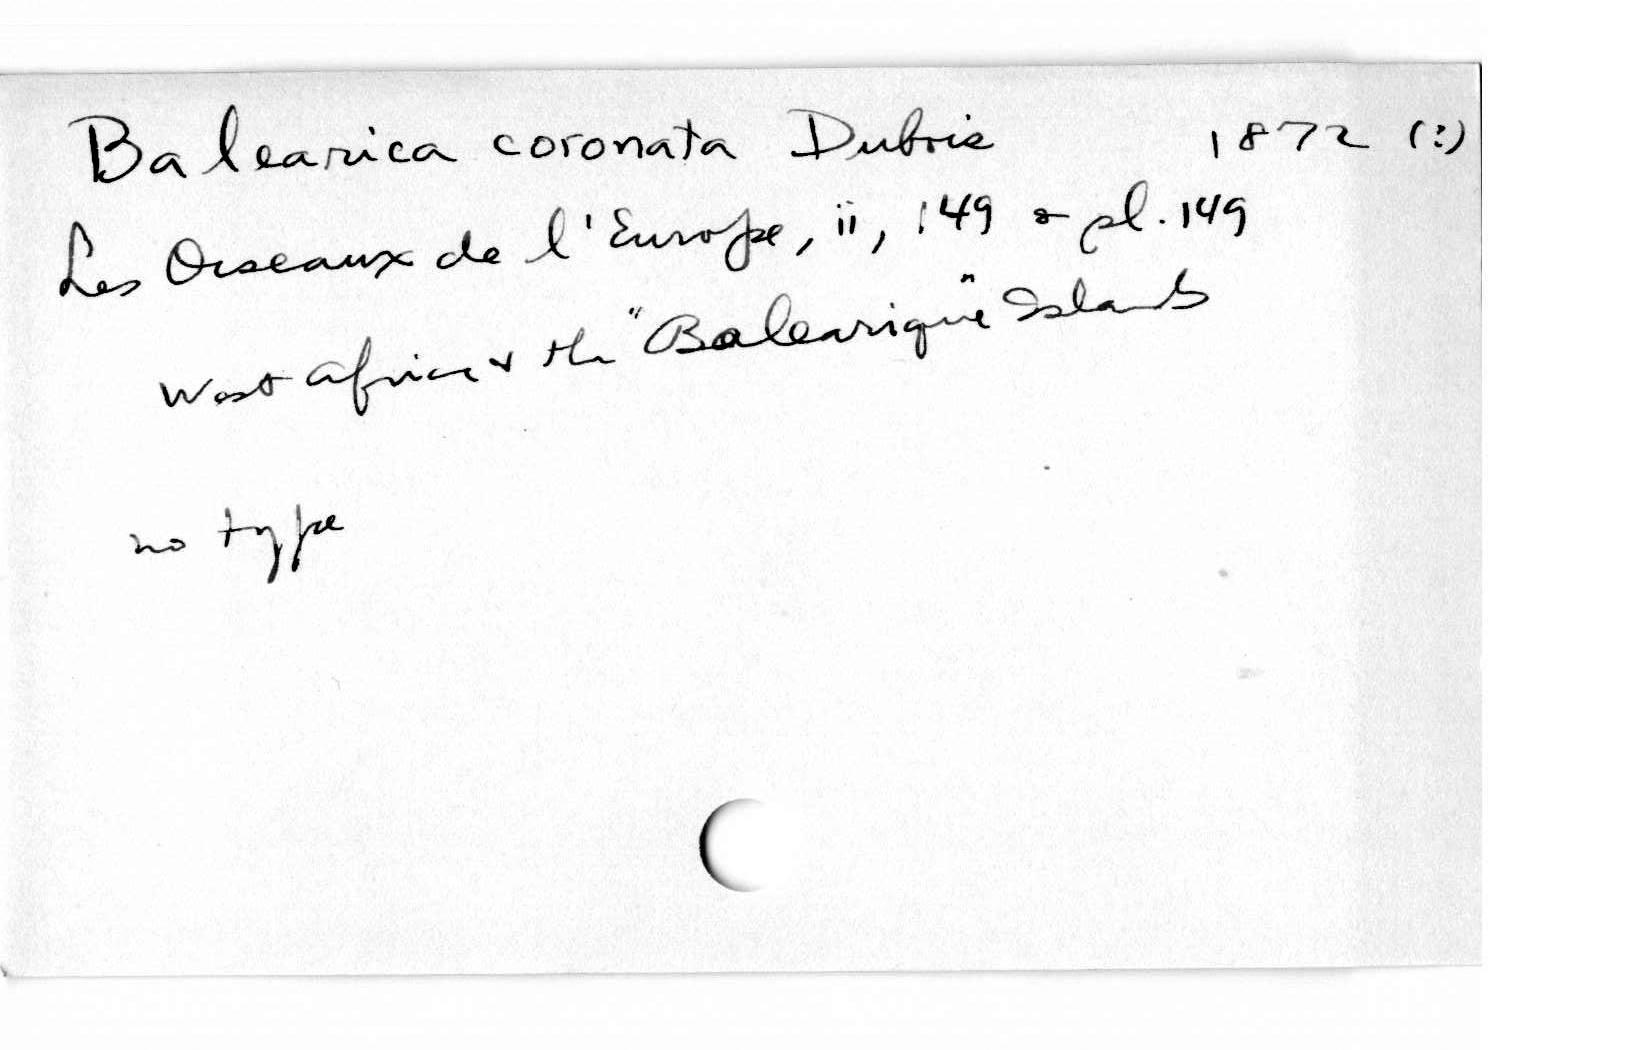 Balearica coronata Dubois 1872 (?)
Les Oiseaux de l'Europe, ii, 149 & pl. 149
West Africa & the "Balearique" Islands
no type